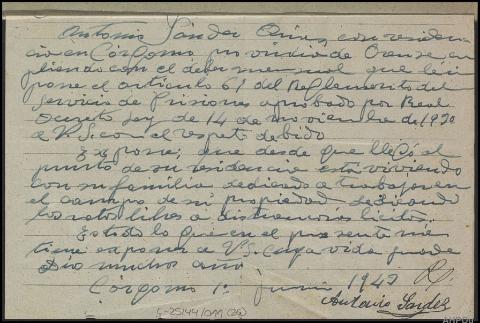 Antonio Sánder Ares, con residen-
cia en Córgomo provincia de Orense, cu
pliendo con el deber mensual que le in
pone el articulo 61 del Reglamento del
Servicio de Prisiones aprobado por Real
Decreto Ley de 14 de noviembre de 1930
a V.S. con el respeto debido
Expone; que desde que llegó al
punto de su residencia esta viviendo
con su familia dedicado a trabajar en
el campo de mi propiedad dedicando
los ratos libres a distracciones licitas.
Es todo lo que en el presente mes
tiene exponer a V.S. cuya vida guarde
Dios muchos años
Córgomo 1º junio 1947
Antonio Sander
C-25144/011(26)
AHPOU